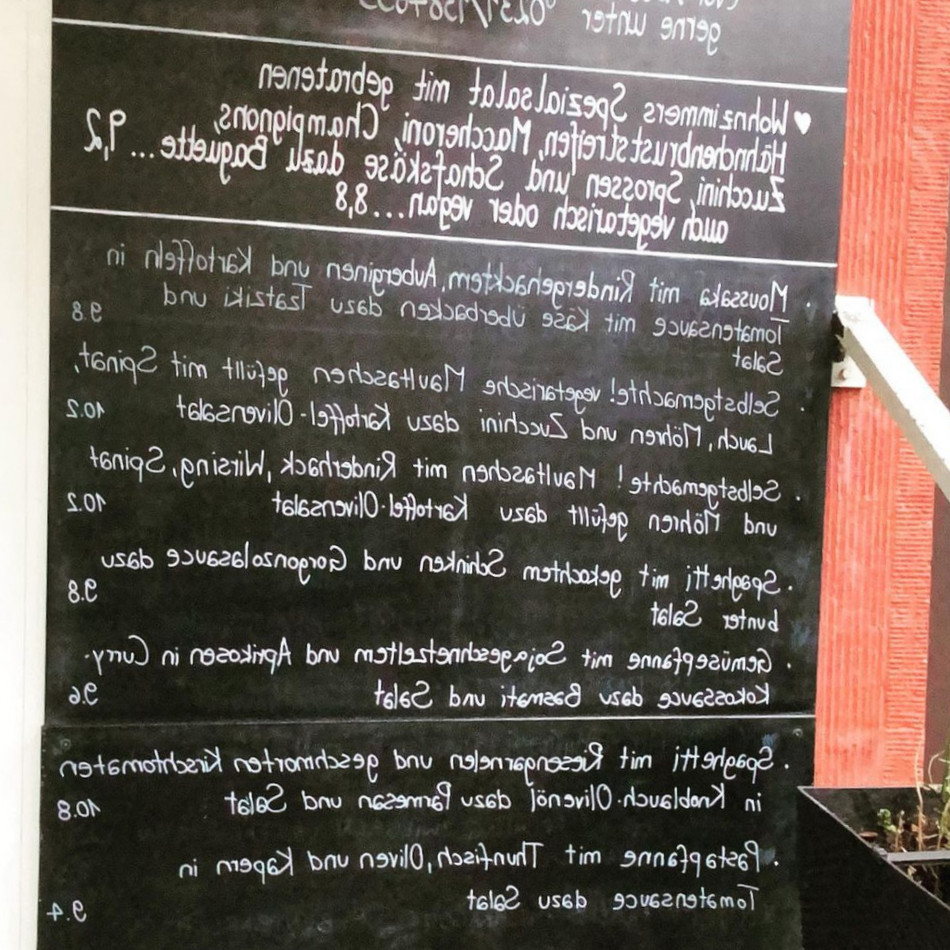 gerne unter
♥ Wohnzimmers Spezialsalat mit gebratenen
Hähnchenbruststreifen, Maccheroni, Champignons,
Zucchini, Sprossen und Schafskäse dazu Baguette... 9,2
auch vegetarisch oder vegan...8,8
· Moussaka mit Rindergehacktem, Auberginen und Kartoffeln in
Tomatensauce mit Käse überbacken dazu Tzatziki und 9.8
Salat
· Selbstgemachte! vegetarische Maultaschen gefüllt mit Spinat,
Lauch, Möhren und Zucchini dazu Kartoffel-Olivensalat 10.2
· Selbstgemachte! Maultaschen mit Rinderhack, Wirsing, Spinat
und Möhren gefüllt dazu Kartoffel-Olivensalat 10.2
· Spaghetti mit gekochtem Schinken und Gorgonzolasauce dazu
bunter Salat 9.8
· Gemüsepfanne mit Sojageschnetzeltem und Aprikosen in Curry-
Kokossauce dazu Basmati und Salat 9.6
· Spaghetti mit Riesengarnelen und geschmorten Kirschtomaten
in Knoblauch-Olivenöl dazu Parmesan und Salat 10.8
· Pastapfanne mit Thunfisch, Oliven und Kapern in
Tomatensauce dazu Salat 9.4